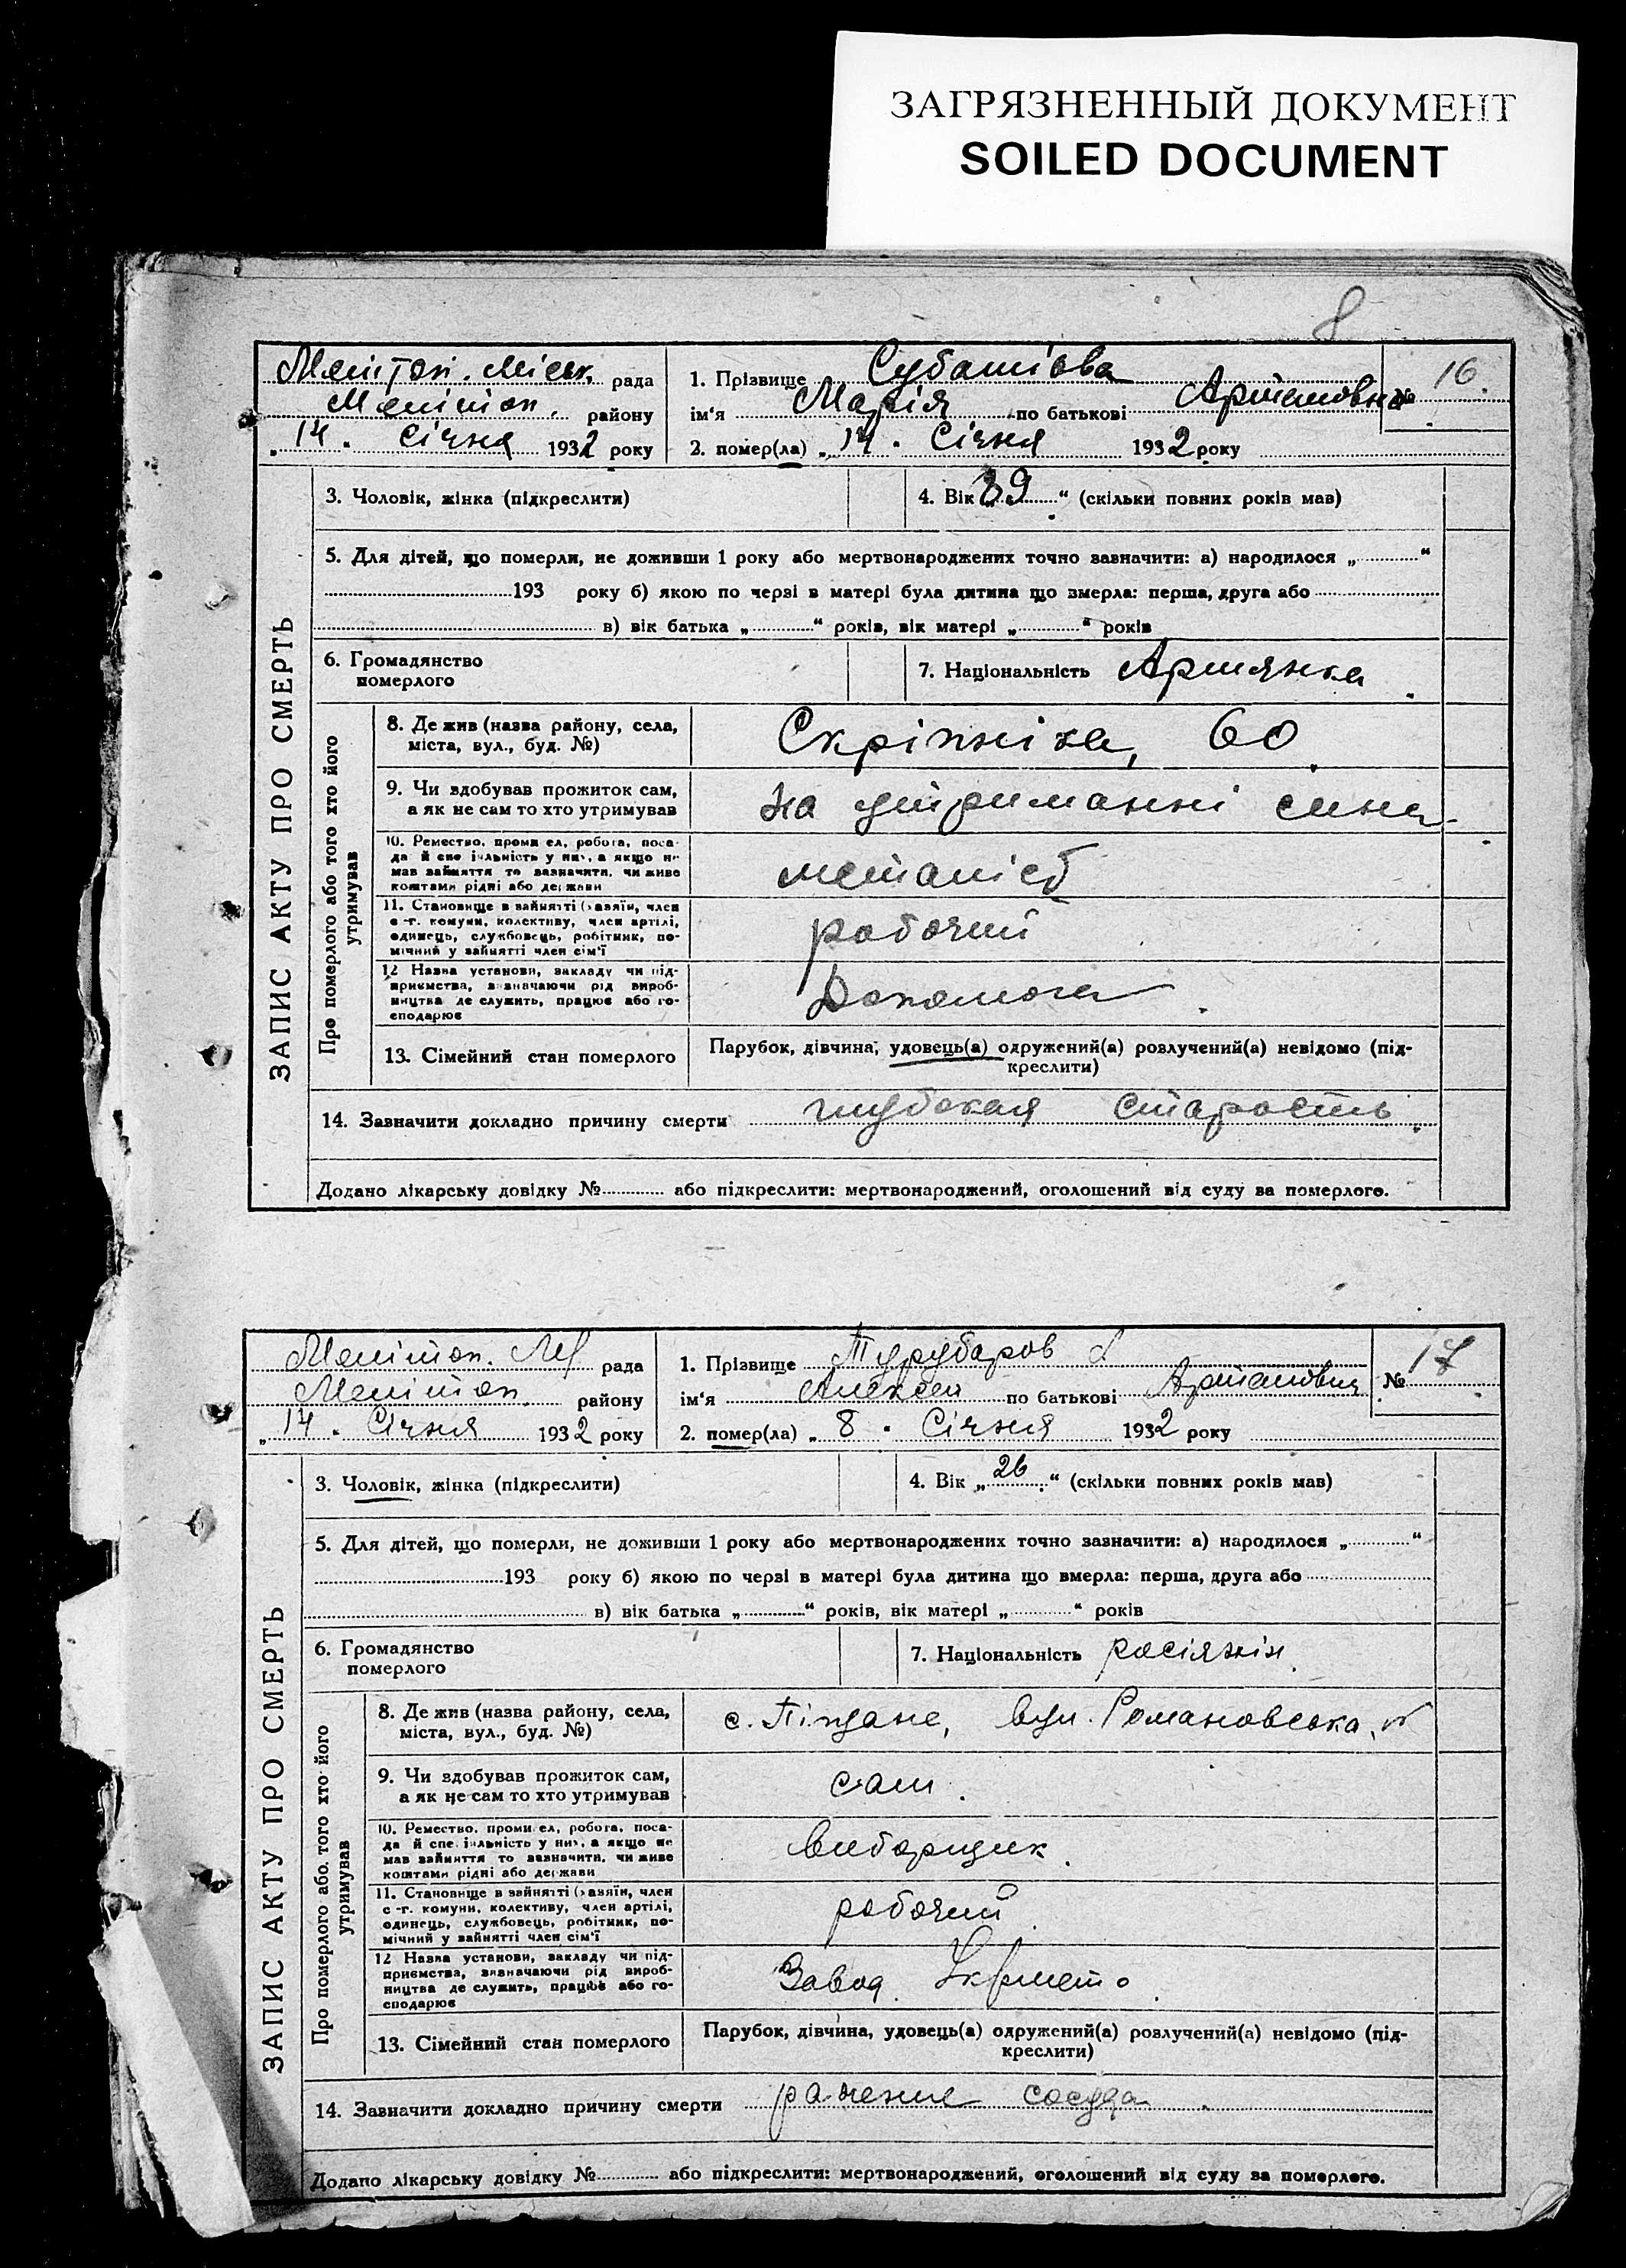 ЗАГРЯЗНЕННЫЙ ДОКУМЕНТ
SOILED DOCUMENT
8
Меліտոп. Міськ. рада
Меліտоп. району
„14. Січня 1932 року
1. Прізвище Субашіова
ім'я Марія по батькові Артемовна
№ 16.
2. помер(ла) „14. Січня 1932 року
ЗАПИС АКТУ ПРО СМЕРТЬ
3. Чоловік, жінка (підкреслити)
4. Вік „89“ (скільки повних років мав)
5. Для дітей, що померли, не доживши 1 року або мертвонароджених точно зазначити: а) народилося „ “
193 року б) якою по черзі в матері була дитина що вмерла: перша, друга або
в) вік батька „ “ років, вік матері „ “ років
6. Громадянство
померлого
7. Національність Армянка.
Про померлого або того хто його
утримував
8. Де жив (назва району, села,
міста, вул., буд. №)
Скріпніка, 60.
9. Чи здобував прожиток сам,
а як не сам то хто утримував
на утриманні сина.
10. Ремество, промисел, робота, поса-
да й спеціальність у них, а якщо не
мав зайняття то зазначити, чи живе
коштами рідні або держави
11. Становище в зайнятті (хазяїн, член
с-г. комуни, колективу, член артілі,
одинець, службовець, робітник, по-
мічний у зайнятті член сім'ї
рабочий
12 Назва установи, закладу чи під-
приємства, зазначаючи рід вироб-
ництва де служить, працює або го-
сподарює
Допомога.
13. Сімейний стан померлого
Парубок, дівчина, удовець(а) одружений(а) розлучений(а) невідомо (під-
креслити)
14. Зазначити докладно причину смерти глубокая старость.
Додано лікарську довідку № або підкреслити: мертвонароджений, оголошений від суду за померлого.
Меліտоп. рада
Меліտоп. району
„14. Січня 1932 року
1. Прізвище Турубаров
ім'я Алексей по батькові Артамович
№ 17.
2. помер(ла) „8. Січня 1932 року
ЗАПИС АКТУ ПРО СМЕРТЬ
3. Чоловік, жінка (підкреслити)
4. Вік „26“ (скільки повних років мав)
5. Для дітей, що померли, не доживши 1 року або мертвонароджених точно зазначити: а) народилося „ “
193 року б) якою по черзі в матері була дитина що вмерла: перша, друга або
в) вік батька „ “ років, вік матері „ “ років
6. Громадянство
померлого
7. Національність росіянін.
Про померлого або того хто його
утримував
8. Де жив (назва району, села,
міста, вул., буд. №)
с. Піщане, вул. Романовська, №
9. Чи здобував прожиток сам,
а як не сам то хто утримував
сам.
10. Ремество, промисел, робота, поса-
да й спеціальність у них, а якщо не
мав зайняття то зазначити, чи живе
коштами рідні або держави
виборщик.
11. Становище в зайнятті (хазяїн, член
с-г. комуни, колективу, член артілі,
одинець, службовець, робітник, по-
мічний у зайнятті член сім'ї
рабочий
12 Назва установи, закладу чи під-
приємства, зазначаючи рід вироб-
ництва де служить, працює або го-
сподарює
Завод Укрмето.
13. Сімейний стан померлого
Парубок, дівчина, удовець(а) одружений(а) розлучений(а) невідомо (під-
креслити)
14. Зазначити докладно причину смерти ранение сосуда.
Додано лікарську довідку № або підкреслити: мертвонароджений, оголошений від суду за померлого.